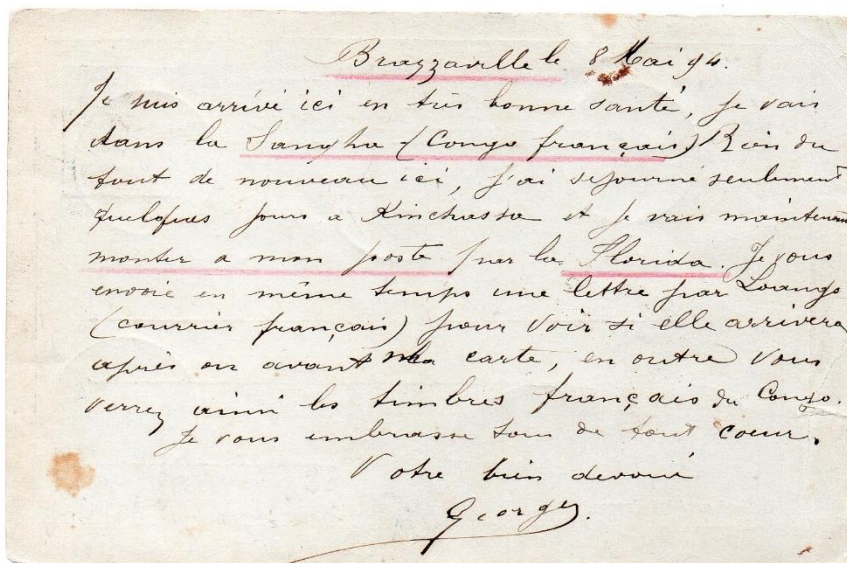 Brazzaville le 8 Mai 94.
Je suis arrivé ici en très bonne santé, je vais
dans la Sangha (Congo français) Rien du
tout de nouveau ici, j'ai séjourné seulement
quelques jours a Kinchassa et je vais maintenant
monter a mon poste par la Florida. Je vous
envoie en même temps une lettre par Loango
(courrier français) pour voir si elle arrivera
après ou avant ma carte, en outre vous
verrez ainsi les timbres français du Congo.
Je vous embrasse tous de tout coeur.
Votre bien devoué
Georges.